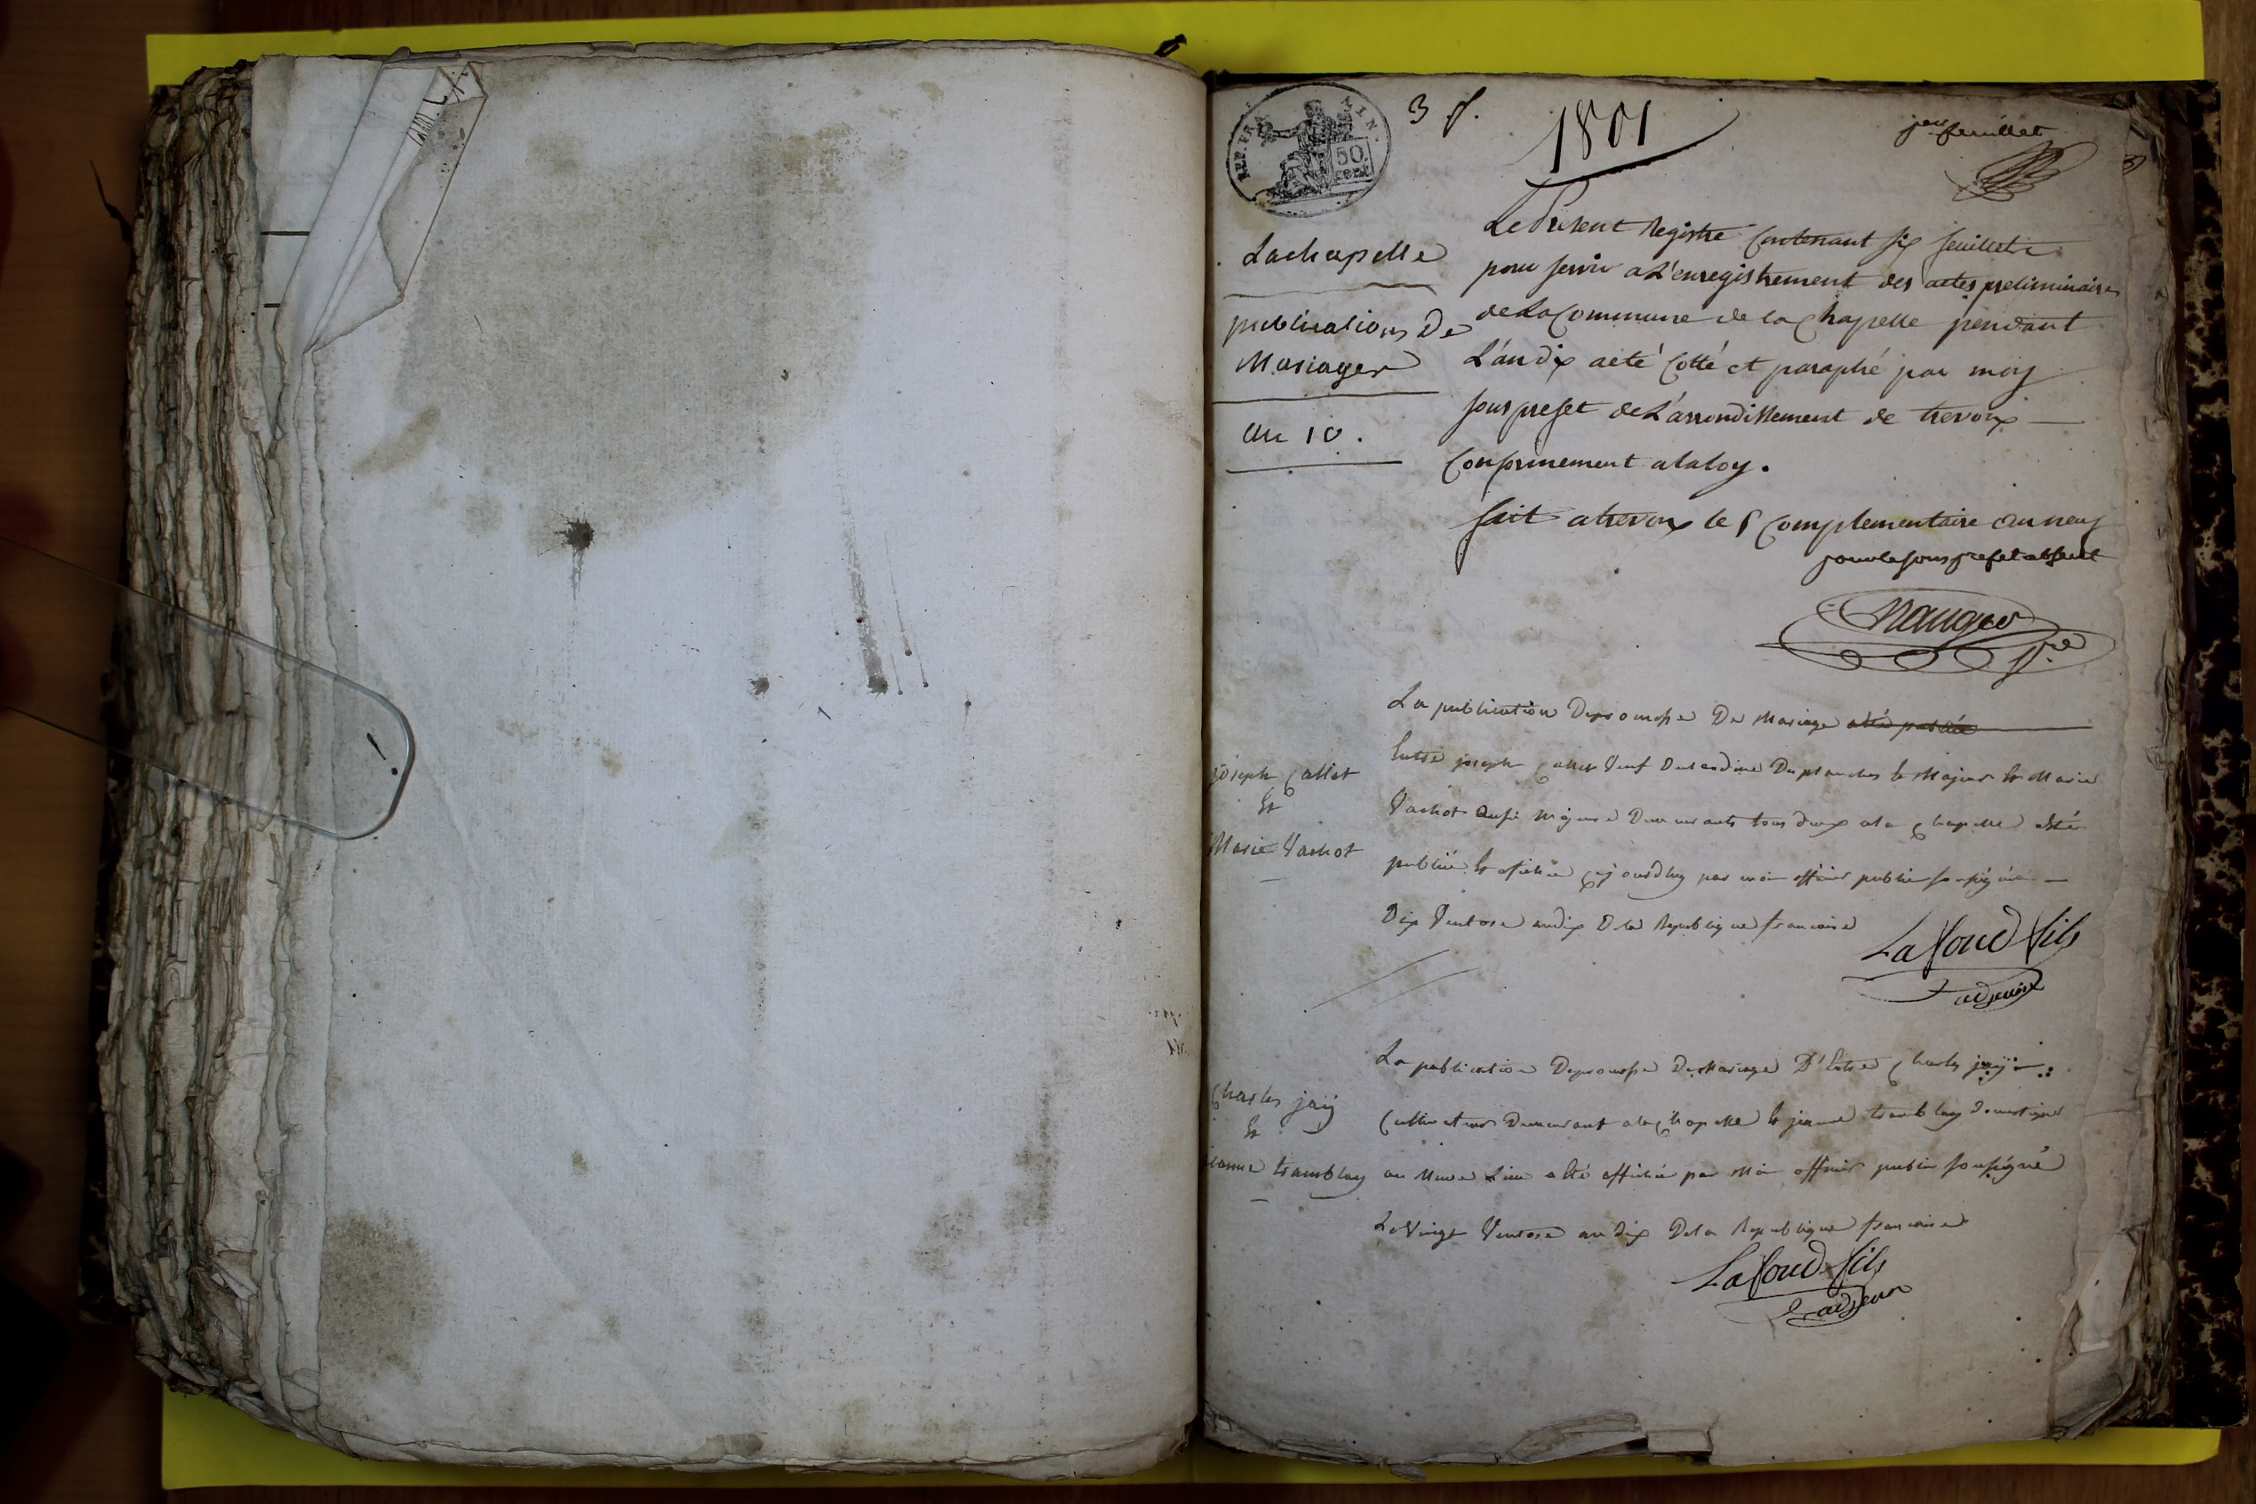 REP. FRA
50 cent
3 f.
1801
1er feuillet
Lachapelle
publications De
Mariages
an 10.
Le Présent Registre Contenant six feuillets
pour servir a L'enregistrement des actes preliminaires
de La Commune de la Chapelle pendant
L'an dix aeté Cotté et paraphé par moy
sous prefet de L'arrondissement de trevoux
Conformement alaloy.
fait atrevoux le 5 Complementaire an neuf
pour le sous prefet absent
Joseph Callet
Et
Marie Vachot
La publication De promesse De Mariage a été publiée
Entre joseph Callet Veuf De Claudine Desplanches Et Majeur Et Marie
Vachot Aussi Majeure Demeurants tous deux a la Chapelle a été
publiée Et afichée cejourdhuy par moi officier public soussigné
Dix Ventose an dix De la Republique francaise
Lafond fils
adjoint
Charles jaÿ
Et
jeanne tramblay
La publication De promesse De Mariage D'Entre Charles jaÿ
Cultivateur Demeurant a la Chapelle Et jeanne tramblay Domestique
au Meme Lieu a Eté affichée par Moi officier public soussigné
Le Vingt Ventose an dix De la Republique francaise
Lafond fils
adjoint